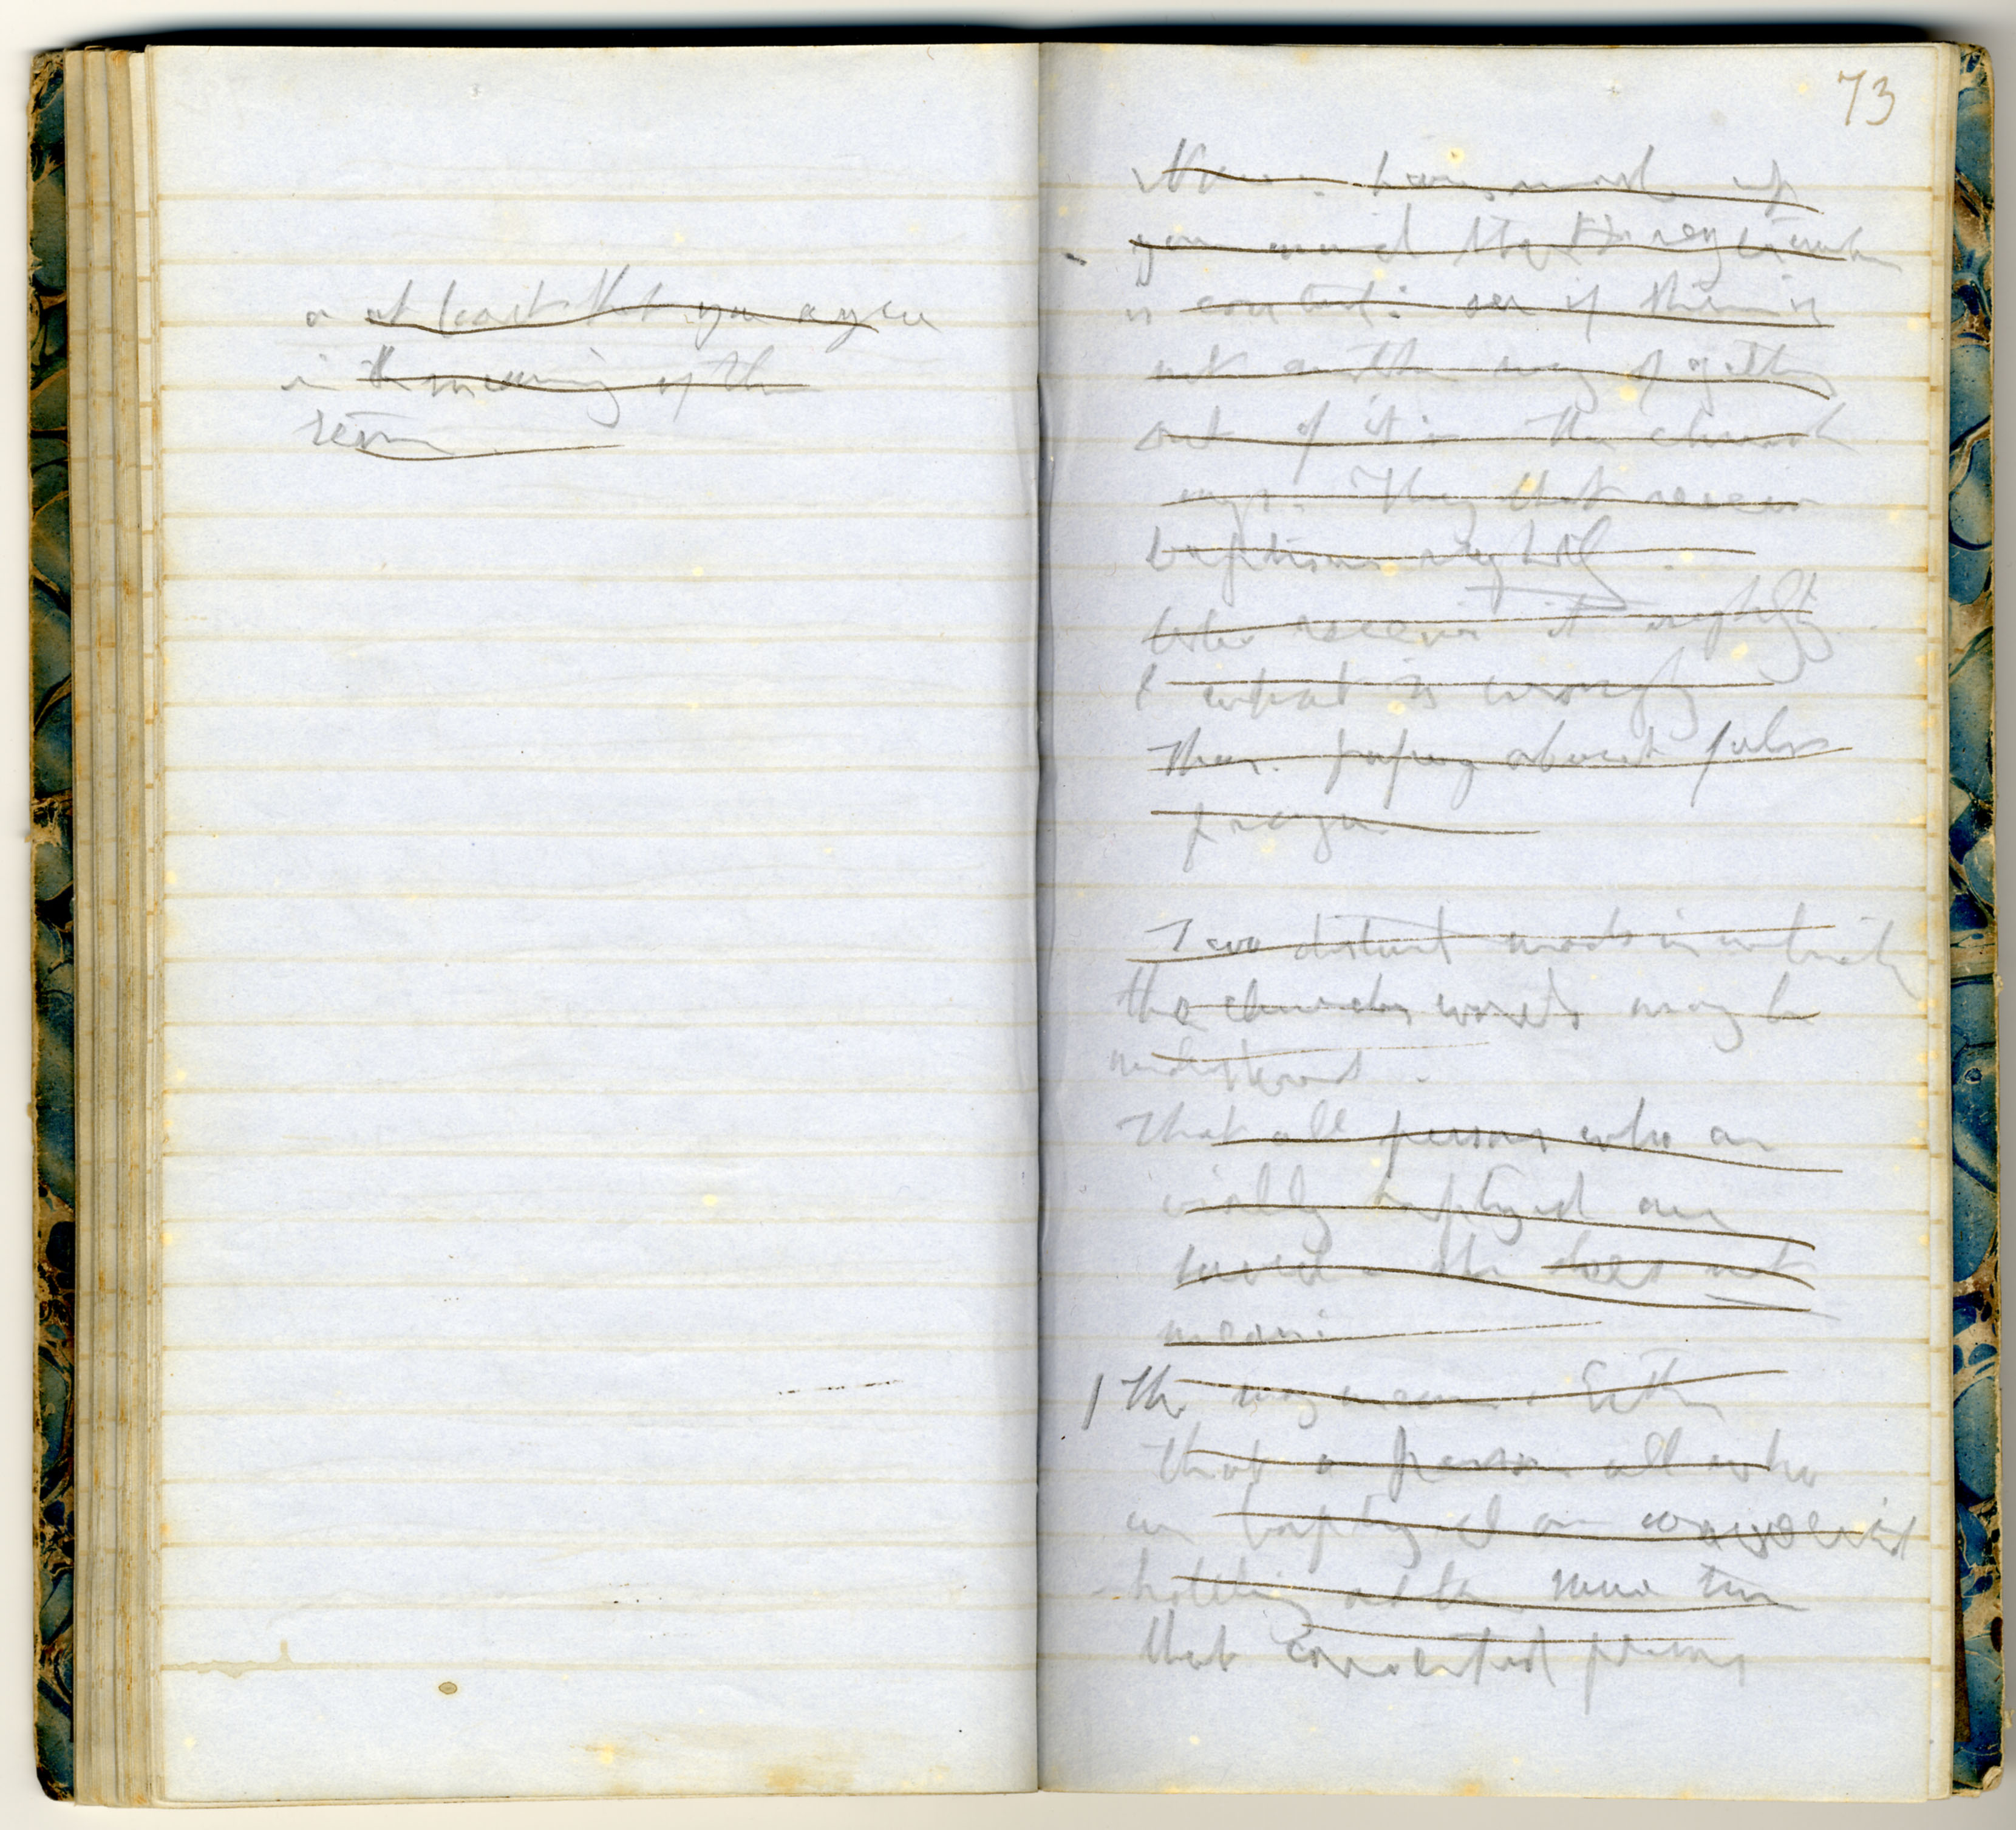 or at least that you agree
in the meaning of the
term
73
Now. having made up
your mind that
is : see if there is
not another way of getting
out of it in the church
says. They that receive
baptism rightly.
Who receives it rightly
& what is wrongly
Then. about false
prayer.
Two distinct in which
the churches words may be
understood.
That all persons who are
visibly baptized are
saved - she does not
mean:
The may mean. Either
that a person all who
are baptized are converted
holding at the same time
that converted persons